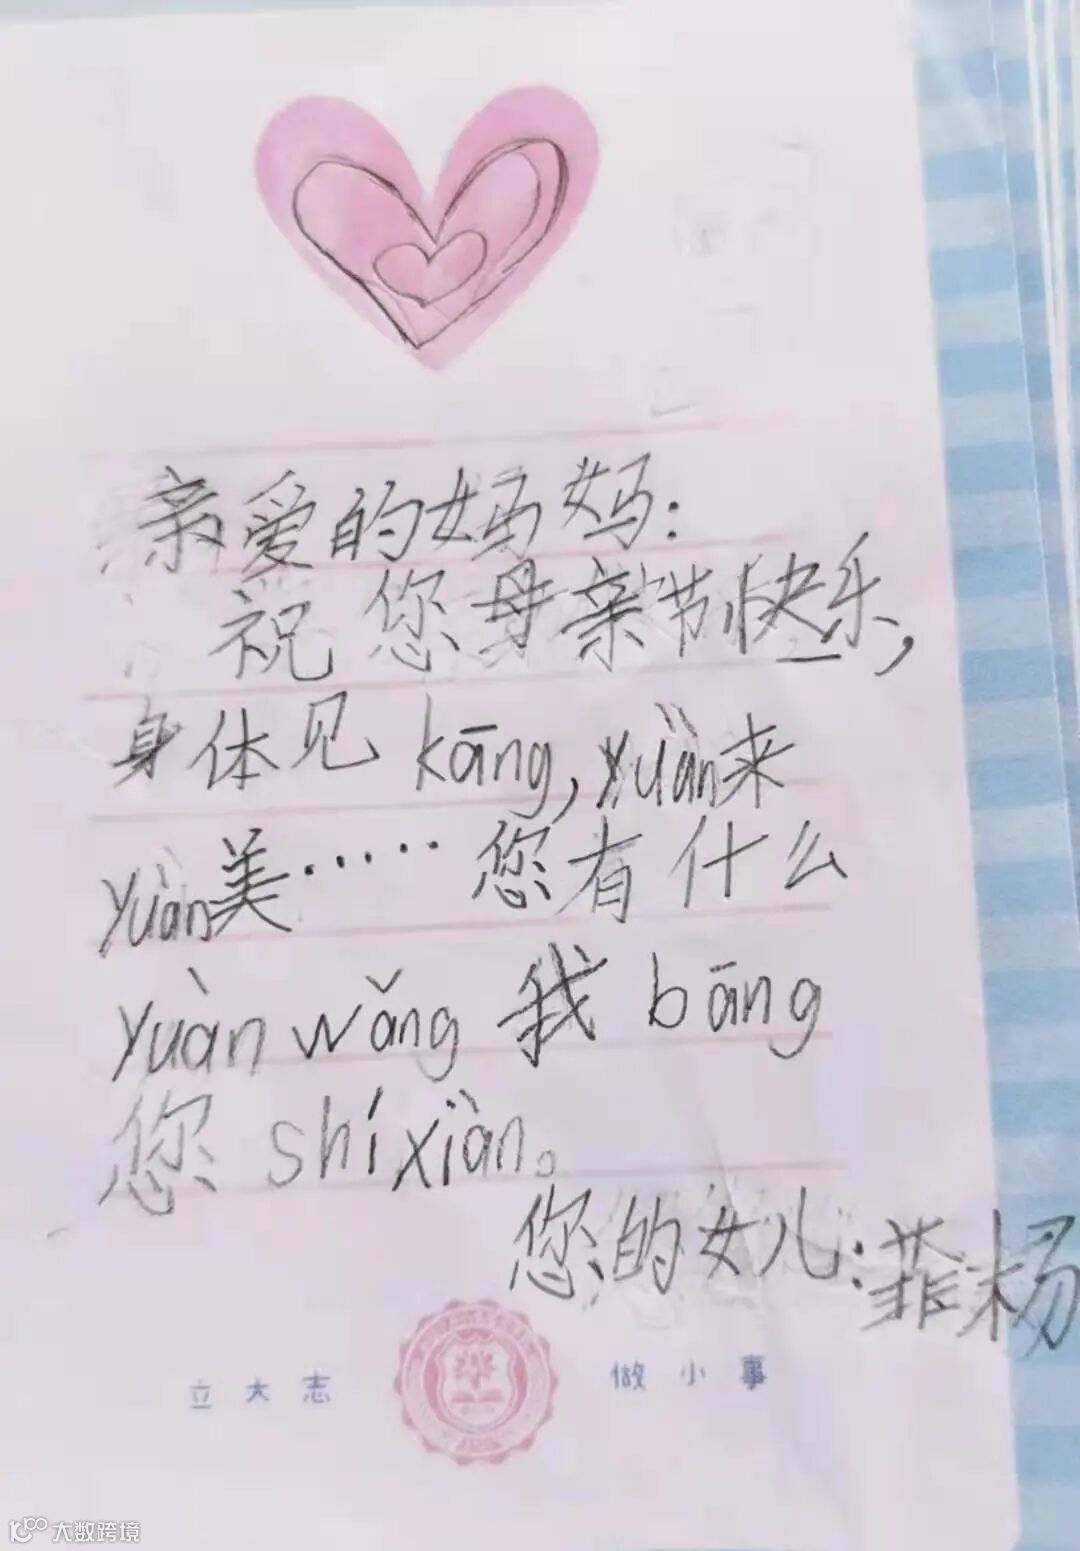 亲爱的妈妈：
祝您母亲节快乐，
身体见kāng，yuàn来
yuàn美……您有什么
yuàn wǎng 我 bāng
您 shíxiàn。
您的女儿：菲杨
立大志 做小事
大数跨境